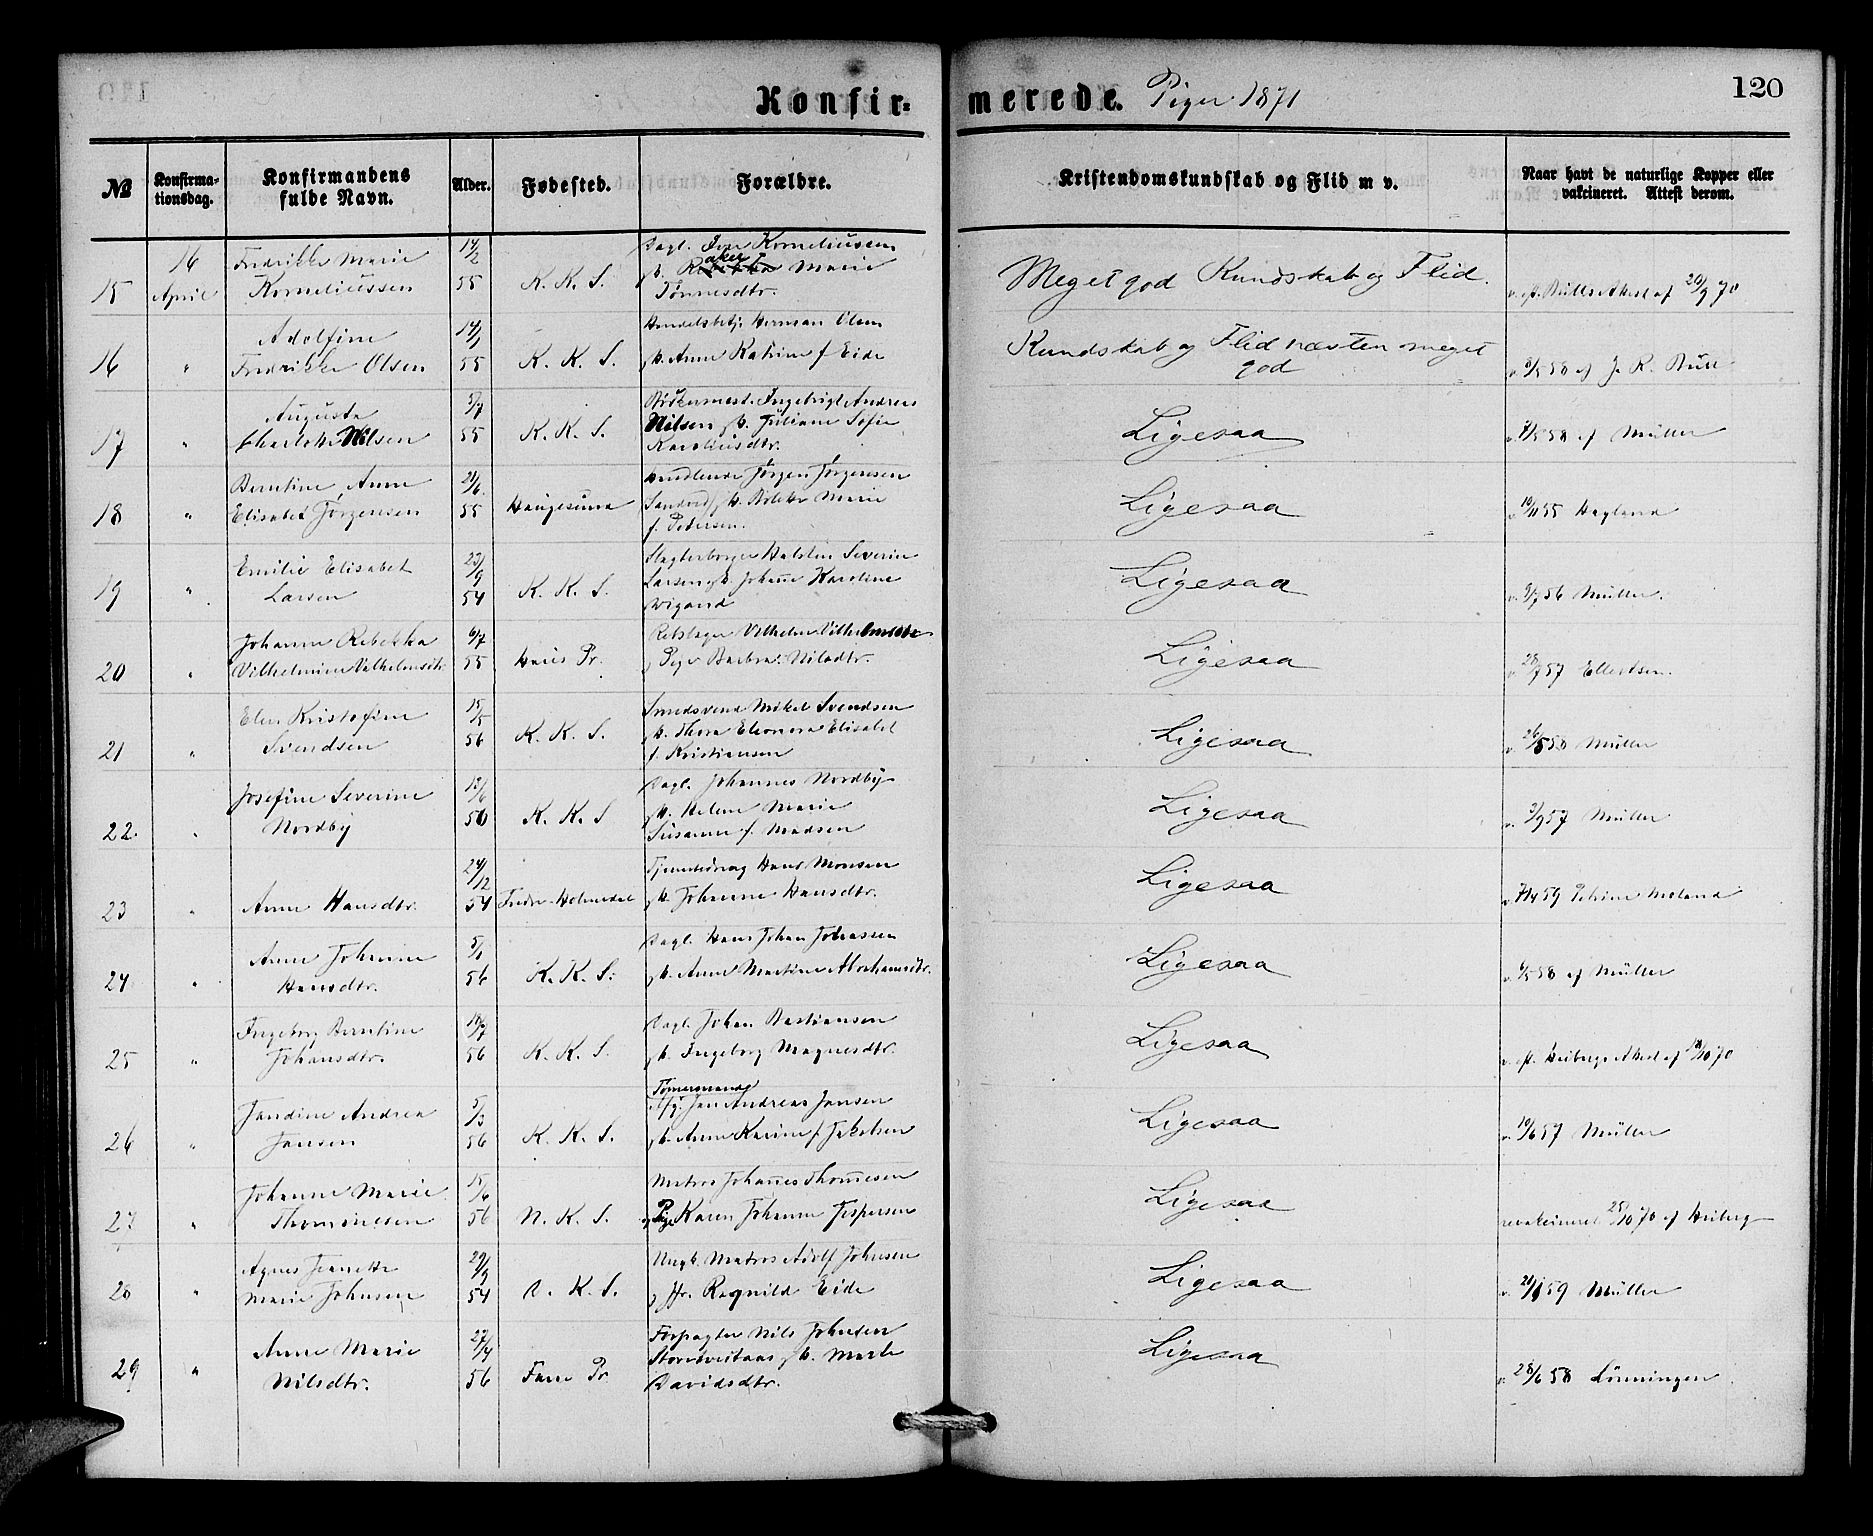 Konfir-
merede. Piger 1871
120
№
Konfirma-
tionsdag.
Konfirmandens
fulde Navn.
Alder.
Fødested.
Forældre.
Kristendomskundskab og Flid m v.
Naar havt de naturlige Kopper eller
vakcineret. Attest derom.
15 16 April Fredrikke Marie Korneliussen 14/2 55 K. K. S. Dagl. Korneliussen Marie Tønnesdtr. Meget god Kundskab og Flid. 70
16 " Adolfine Fredrikke Olsen 14/1 55 K. K. S. Herman Olsen Anne Katrine f Eide Kundskab og Flid næsten meget god 58 af J. K. Bull
17 " Auguste Charlotte Nilsen 5/7 55 K. K. S. Ingebrigt Andreas Nilsen Juliane Sofie Karoliusdtr. Ligesaa 58 af Müller
18 " Berntine Anne Elisabet Jørgensen 21/6 55 Haugesund Jørgen Jørgensen Marie f. Pedersen. Ligesaa 55 Hagland
19 " Emilie Elisabet Larsen 23/9 54 K. K. S. Severin Larsen Johanne Karoline Wigand Ligesaa 56 Müller.
20 " Johanne Rebekka Vilhelmine Vilhelmsdtr. 6/7 55 Pr. Vilhelm Pige Barbra Nilsdtr. Ligesaa 57 Ellertsen.
21 " Elen Kristofine Svendsen 15/5 56 K. K. S. Smedsvend Mikal Svendsen Thora Eleonora Elisabet f. Kristiansen Ligesaa 58 Müller
22. " Josefine Severine Nordby K. K. S Dagl. Johannes Nordby Helene Marie Susanne f. Madsen Ligesaa 57 Müller
23 " Anne Hansdtr. 24/12 54 Hans Monsen Johanne Hansdtr. Ligesaa 59
24 " Anne Johanne Hansdtr. 5/1 56 K. K. S. Dagl. Hans Johan Anne Martine Abrahamsdtr. Ligesaa 58 af Müller
25 " Ingeborg Berntine Johansdtr. 56 K. K. S. Dagl. Johan Bastiansen Ingeborg Magnesdtr. Ligesaa 70
26 " Jandine Andrea Jansen 5/3 56 K. K. S. Tømmermand Jan Andreas Jansen Anne Karine f Jakobsen Ligesaa 57 Müller
27 " Johanne Marie 15/6 56 N. K. S. Matros Johannes Pige Karen Johanne Jespersen Ligesaa revakcineret 70 af Heiberg
28 " Agnes Jeanette Marie Johnsen 29/9 54 K. S. Ungk. Matros Adolf Johnsen Ragnild Eide Ligesaa 59 Müller
29 " Anne Marie Nilsdtr. 27/4 56 Pr Forpagter Nils Johnsen Davidsdtr. Ligesaa 28/6 58 Lønningen